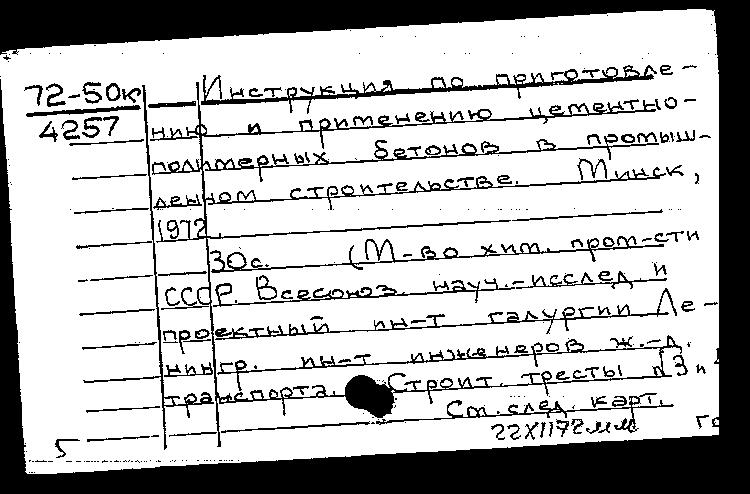 72-50к Инструкция по приготовле-
4257 нию и применению цементно-
полимерных бетонов в промыш-
ленном строительстве. Минск,
1972.
30с. (М-во хим. пром-сти
СССР. Всесоюз. науч.-исслед. и
проектный ин-т галургии Ле-
нингр. ин-т инженеров ж.-д.
транспорта. Строит. тресты №3 и
См. след. карт.
5 22XII72